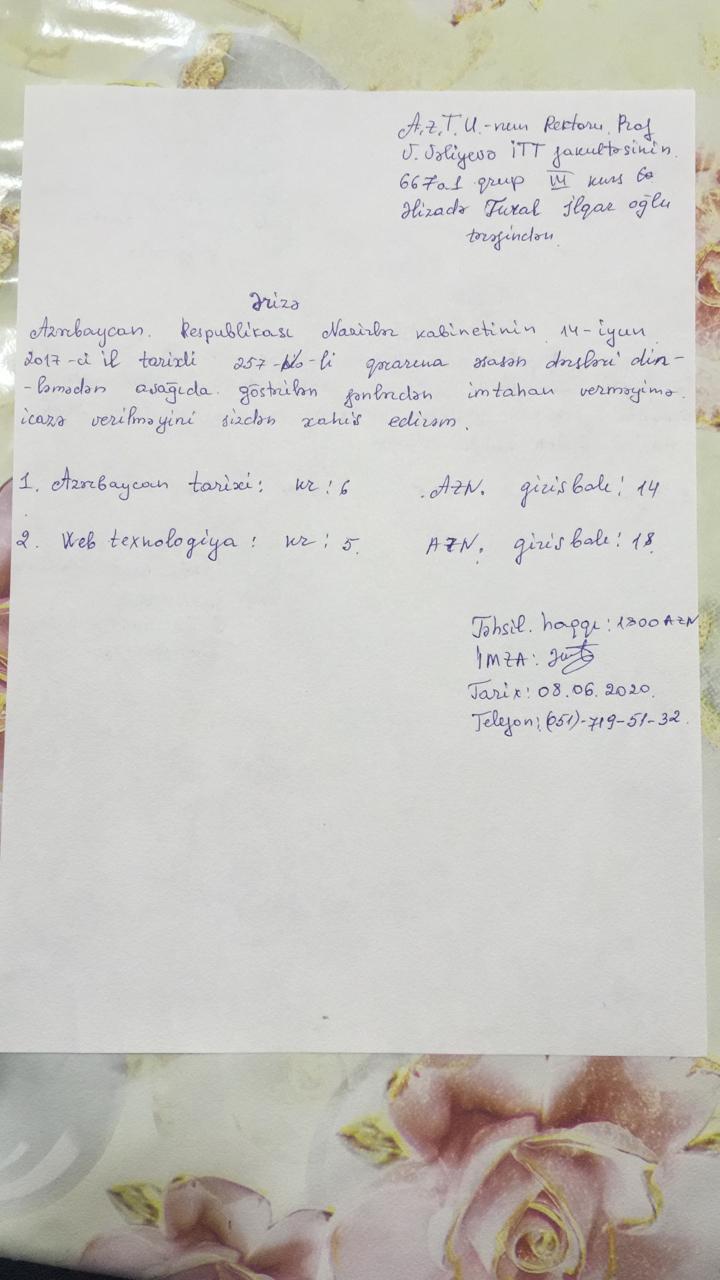 A.z.T.U.-nun Rektoru Prof
V. Vəliyevə İTT fakultəsinin
667a1 qrup IV kurs
Əlizadə Tural İlqar oğlu
tərəfindən.
Ərizə
Azərbaycan Respublikası Nazirlər kabinetinin 14-iyun
2017-ci il tarixli 257-№-li qərarına əsasən dərsləri din-
-ləmədən aşağıda göstərilən fənlərdən imtahan verməyimə
icazə verilməyini sizdən xahiş edirəm.
1. Azərbaycan tarixi: kr: 6 AZN. giriş balı: 14
2. Web texnologiya: kr: 5 AZN. giriş balı: 18
Təhsil haqqı: 1800 AZN
İMZA:
Tarix: 08.06.2020.
Telefon: (051)-719-51-32